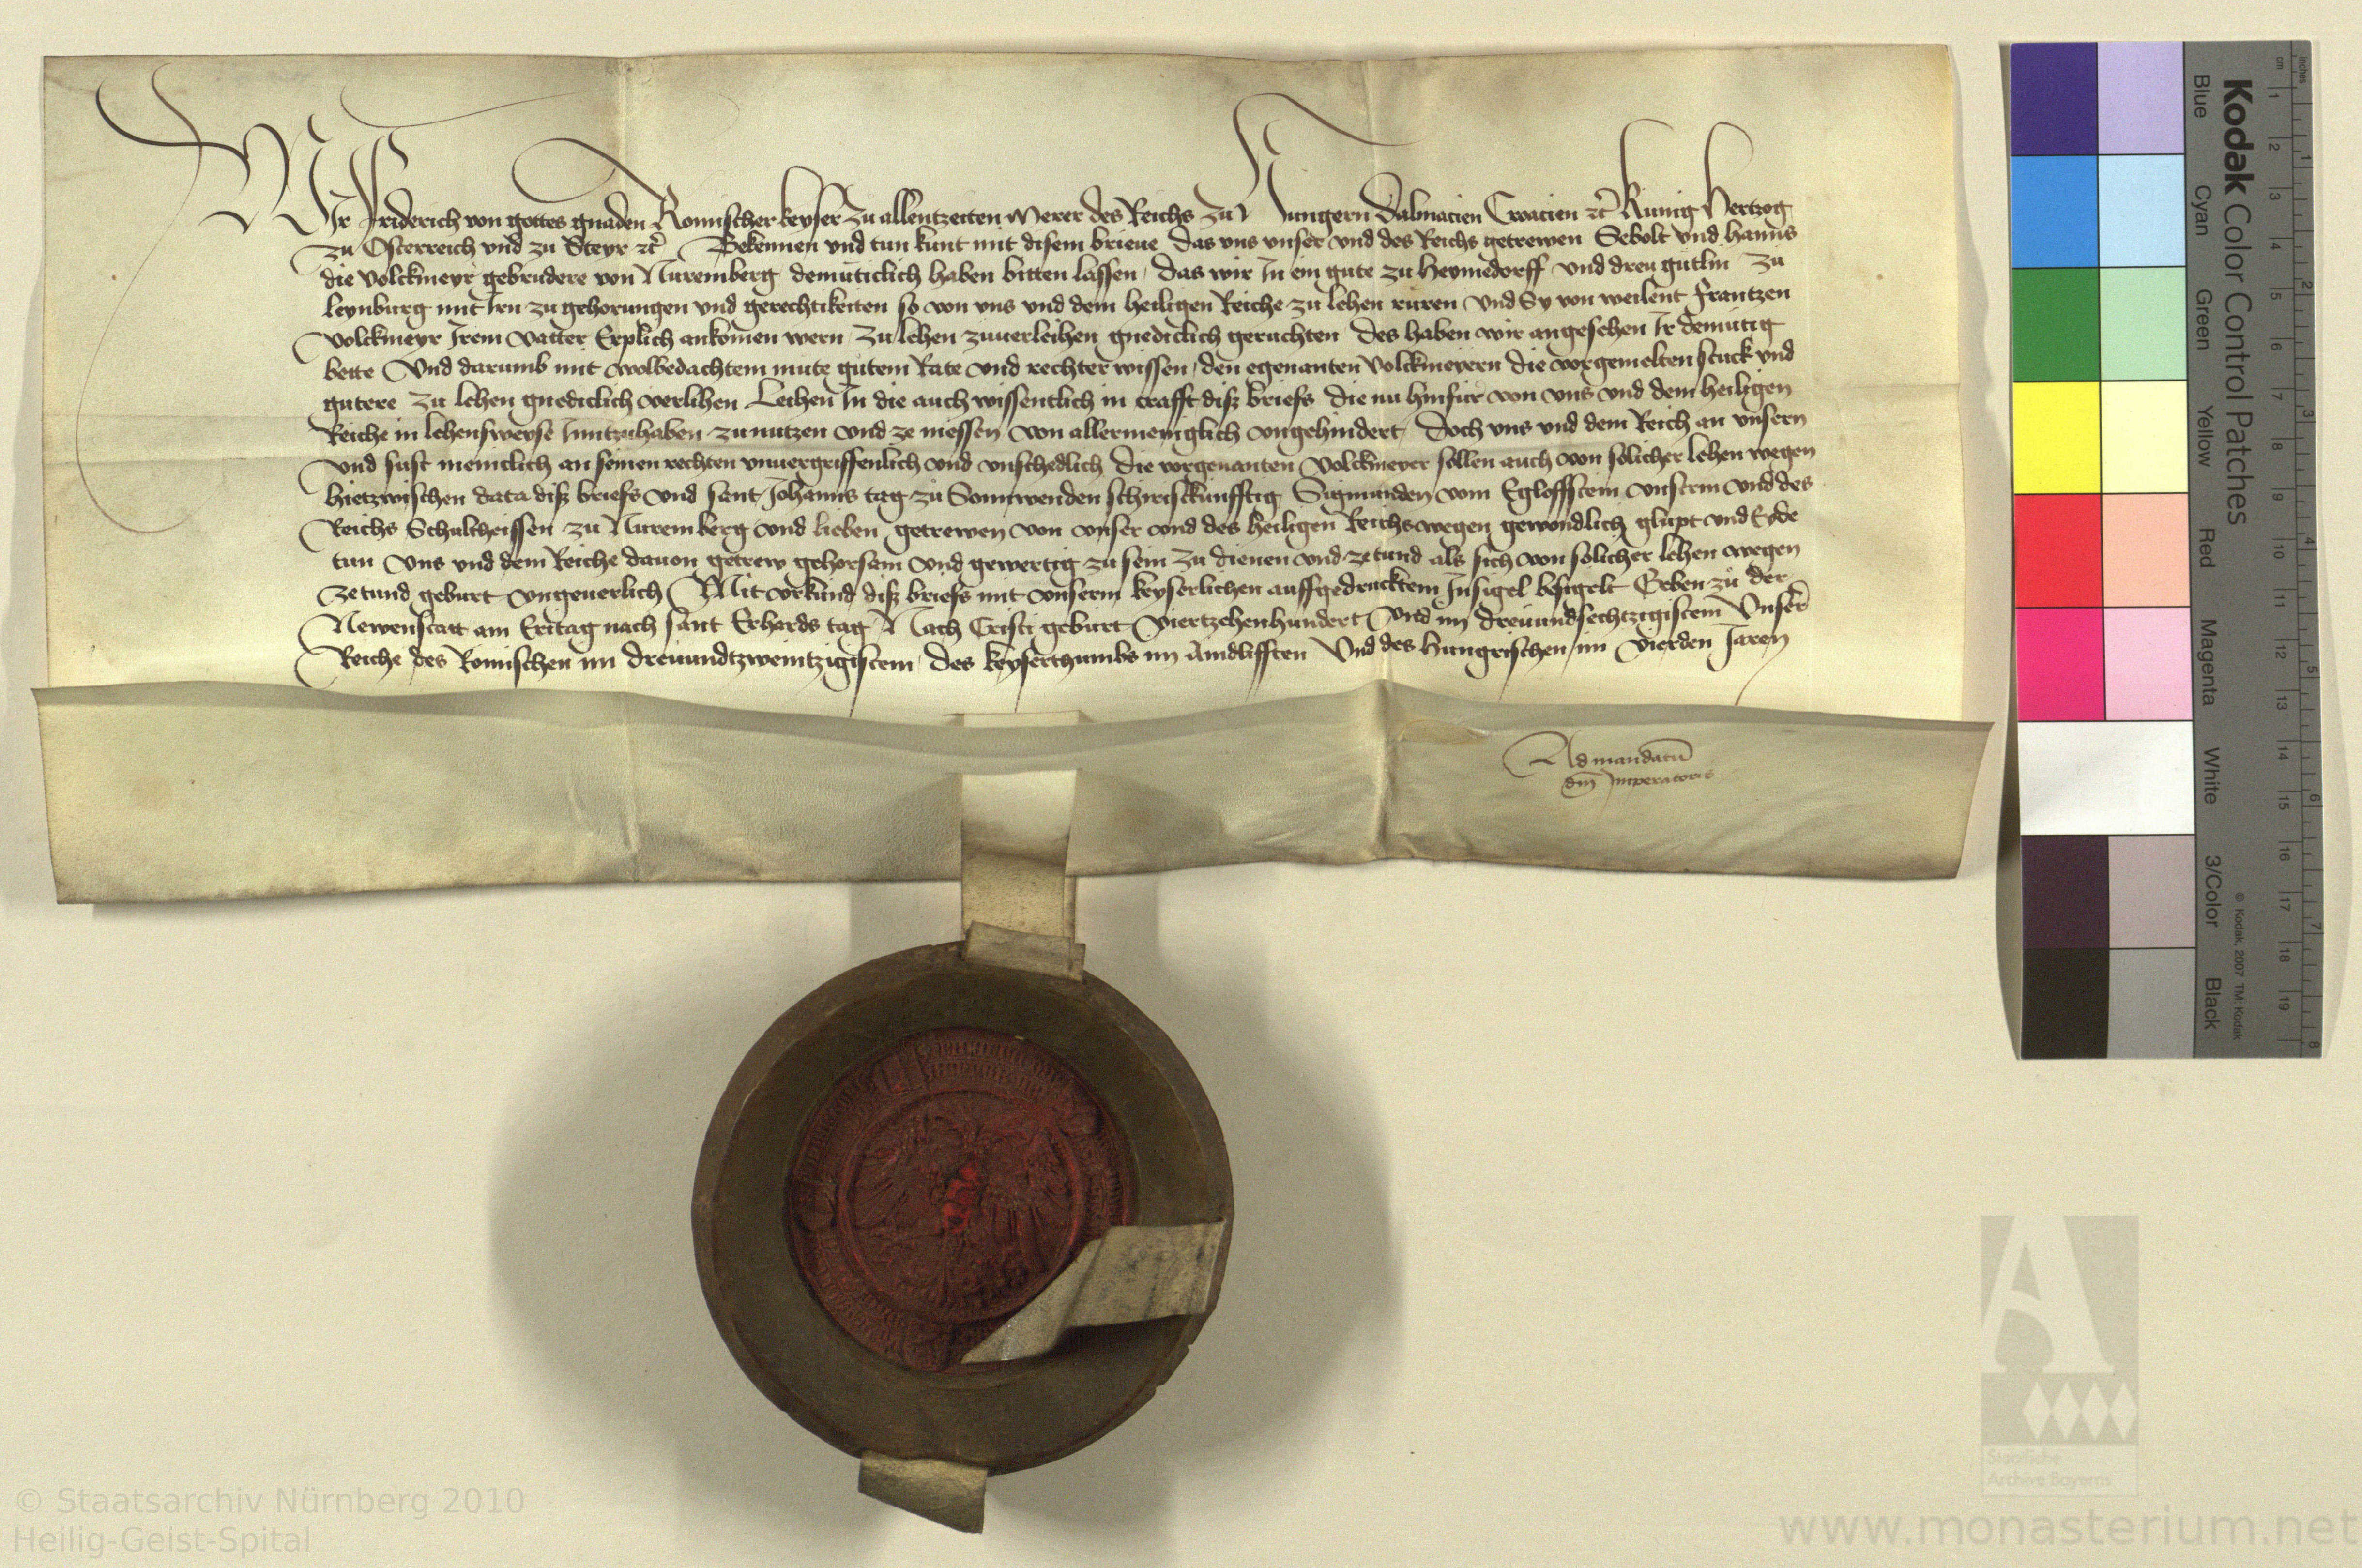 Wir Friderich von gottes gnaden Romischer keyser zu allentzeiten Merer des Reichs zu Hungern Dalmacien Croacien etc Kunig Hertzog
zu Osterreich vnd zu Steyr etc Bekennen vnd tun kunt mit disem brieue das vns vnser vnd des Reichs getrewen Sebolt vnd hanns
die Volckmeyr gebrudere von Nuremberg demuticlich haben bitten lassen das wir In ein gute zu heymedorff vnd dreu gutlin zu
leynburg mit Iren zugehorungen vnd gerechtikeiten so von vns vnd dem heiligen Reiche zu lehen ruren vnd Sy von weilent frantzen
Volckmeyr Irem Vatter Erplich ankomen wern zu lehen zuuerleihen gnediclich geruchten des haben wir angesehen Ir demutig
bette Vnd darumb mit wolbedachtem mute gutem Rate vnd rechter wissen den egenanten Volckmeyern die vorgemelten stuck vnd
gutere zu lehen gnediclich verlihen Leihen In die auch wissentlich in crafft diß briefs die nu hinfur von vns vnd dem heiligen
Reiche in lehensweyse Inntzuhaben zunutzen vnd ze niessen von allermeniglich vngehindert Doch vns vnd dem Reich an vnsern
vnd sust meniclich an seinen rechten vnuergriffenlich vnd vnschedlich die vorgenanten Volckmeyer sollen auch von solicher lehen wegen
hietzwischen data diß briefs vnd sant Johanns tag zu Sonnwenden schiristkunfftig Sigmunden vom Egloffstein vnserm vnd des
Reichs Schultheissen zu Nuremberg vnd lieben getrewen von vnser vnd des heiligen Reichs wegen gewondlich glupt vnd Eyde
tun vns vnd dem Reiche dauon getrew gehorsam vnd gewertig zu sein zu dienen vnd zetund als sich von solicher lehen wegen
zetund geburt vngeuerlich Mit vrkund diß briefs mit vnserm keyserlichen auffgedrucktem Insigel besigelt Geben zu der
Newenstatt am Eritag nach sant Erhards tag Nach Cristi geburt Viertzehenhundert Vnd im dreuundsechtzigistem Vnser
Reiche des Romischen im dreuundtzweintzigistem des keyserthumbs im Aindlifften Vnd des hungrischen im vierden Jaren
Ad mandatu
dni Imperatoris
Kodak Color Control Patches
Blue Cyan Green Yellow Red Magenta White 3/Color Black
© Kodak, 2007 TM: Kodak
cm 1 2 3 4 5 6 7 8 9 10 11 12 13 14 15 16 17 18 19
inches 1 2 3 4 5 6 7 8
Staatliche
Archive Bayerns
© Staatsarchiv Nürnberg 2010
Heilig-Geist-Spital
www.monasterium.net